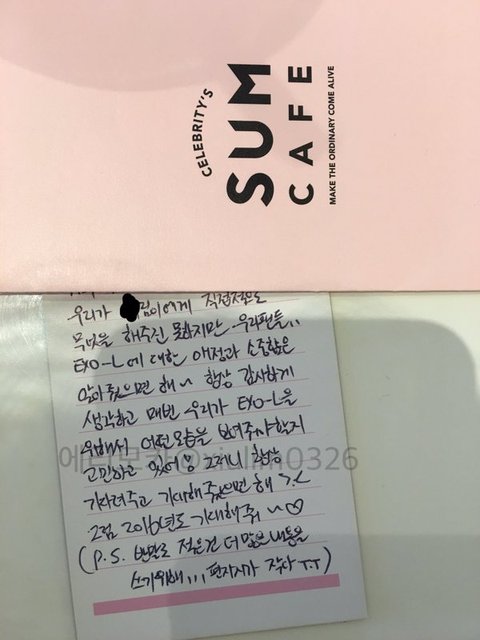 CELEBRITY'S
SUM
CAFE
MAKE THE ORDINARY COME ALIVE
우리가 직접적으로
무엇을 해주진 못하지만 우리팬들,,
EXO-L에 대한 애정과 소중함은
알아줬으면 해~ 항상 감사하게
생각하고 매번 우리가 EXO-L을
위해서 어떤모습을 보여주야할지
고민하고 있어용 그러니 항상
기다려주고 기대해줬으면 해 >.<
그럼 2016년도 기대해줘 ~♡
(P.S. 반말로 적은건 더 많은 내용을
쓰기위해,,, 편지지가 작다 T.T)